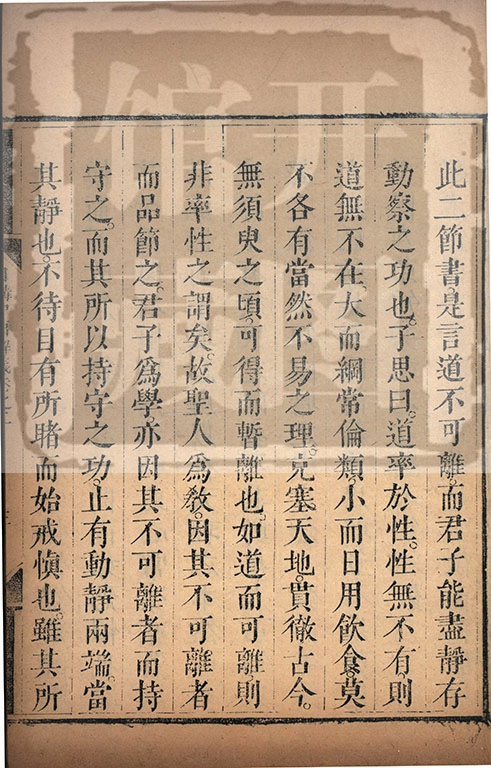 此二節書是言道不可離而君子能盡靜存
動察之功也子思曰道率於性性無不有則
道無不在大而綱常倫類小而日用飲食莫
不各有當然不易之理充塞天地貫徹古今
無須臾之頃可得而暫離也如道而可離則
非率性之謂矣故聖人為教因其不可離者
而品節之君子為學亦因其不可離者而持
守之而其所以持守之功止有動靜兩端當
其靜也不待目有所睹而始戒慎也雖其所